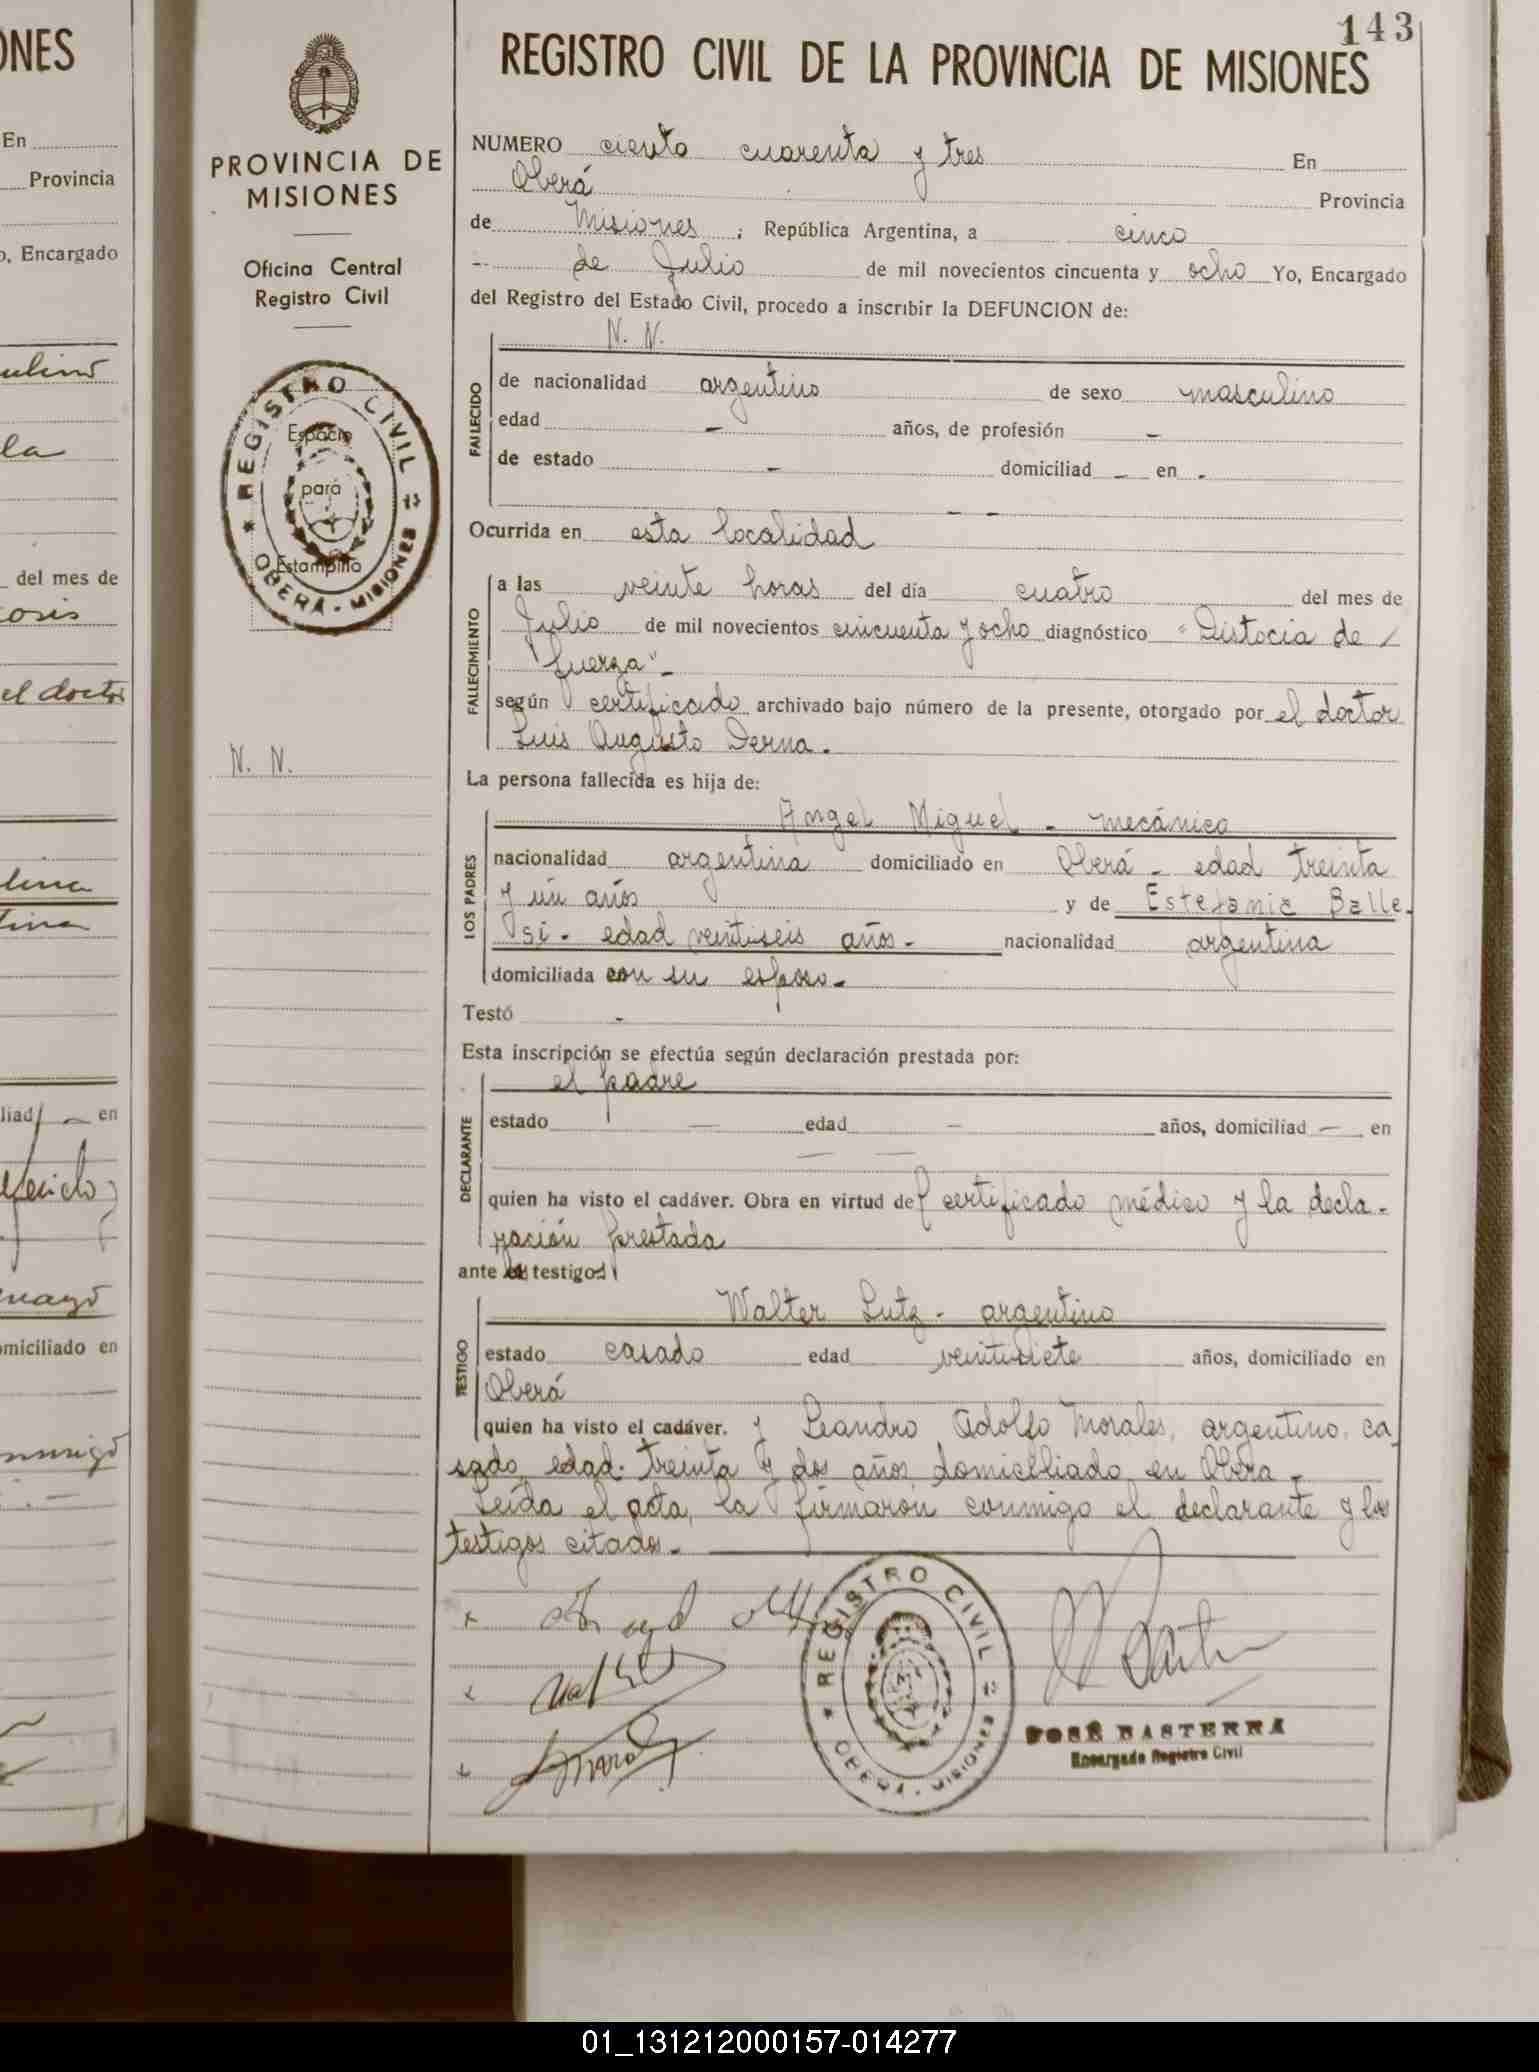 ONES
En
Provincia
o, Encargado
la
del mes de
osis
el doctor
lina
tina
liad - en
miciliado en
PROVINCIA DE
MISIONES
Oficina Central
Registro Civil
REGISTRO CIVIL
Espacio
para
Estampilla
OBERA - MISIONES
N. N.
143
REGISTRO CIVIL DE LA PROVINCIA DE MISIONES
NUMERO ciento cuarenta y tres En
Oberá Provincia
de Misiones, República Argentina, a cinco
de Julio de mil novecientos cincuenta y ocho Yo, Encargado
del Registro del Estado Civil, procedo a inscribir la DEFUNCION de:
N. N.
FALLECIDO
de nacionalidad argentino de sexo masculino
edad - años, de profesión -
de estado - domiciliad - en -
- -
Ocurrida en esta localidad
FALLECIMIENTO
a las veinte horas del día cuatro del mes de
Julio de mil novecientos cincuenta y ocho diagnóstico "Distocia de
fuerza" -
según certificado archivado bajo número de la presente, otorgado por el doctor
Luis Augusto Derna.
La persona fallecida es hija de:
LOS PADRES
Angel Miguel - mecánico
nacionalidad argentina domiciliado en Oberá - edad treinta
y un años y de Estefania Balle-
si - edad veintiseis años - nacionalidad argentina
domiciliada con su esposo -
Testó -
Esta inscripción se efectúa según declaración prestada por:
DECLARANTE
el padre
estado - edad - años, domiciliad - en
- -
quien ha visto el cadáver. Obra en virtud de certificado médico y la decla-
ración prestada
ante testigos
TESTIGO
Walter Lutz - argentino
estado casado edad veintisiete años, domiciliado en
Oberá
quien ha visto el cadáver. y Leandro Adolfo Morales, argentino, ca
sado, edad treinta y dos años domicibliado en Obera -
Leída el acta, la firmaron conmigo el declarante y los
testigos citados -
REGISTRO CIVIL
OBERA - MISIONES
JOSÉ BASTERRA
Encargado Registro Civil
01_131212000157-014277